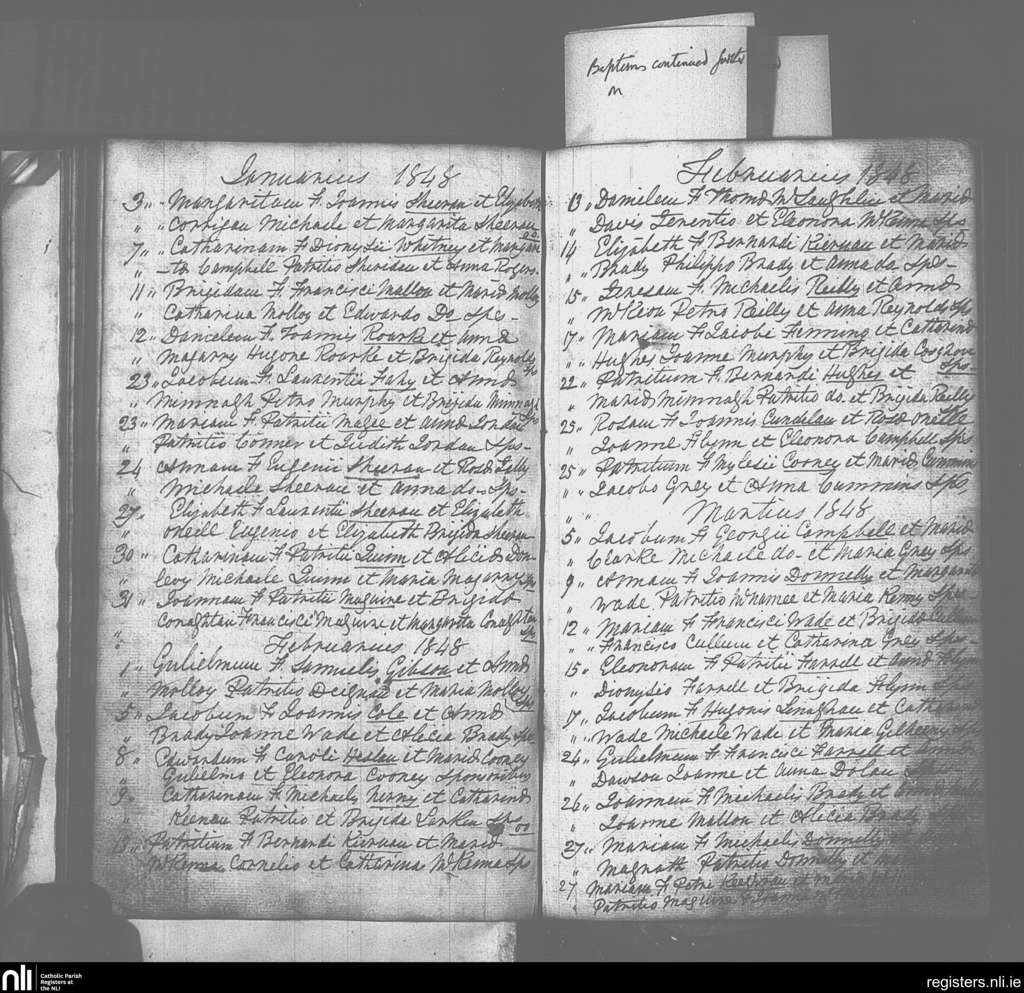 Baptisms continued further
on
Januarius 1848
3 " Margaritam F. Joannis Sheeran et Elizabeth
" " Corrigan Michaele et Margarita Sheeran
7 " Catharinam F. Dionysii Whitney et Margari-
" -ta Campbell Patritio Sheridan et Anna Rogers
11 " Brigidam F. Francisci Mallon et Maria Molloy
" Catharina Molloy et Edwardo Do Sps-
12 " Danielem F. Joannis Rourke et Anna
" Magarry Hugone Rourke et Brigida Reynolds
Sps
23 " Jacobum F. Laurentii Fahy et Anna
" Mimnagh Petro Murphy et Brigida Mimnagh
23 " Mariam F. Patritii Magee et Anna Jordan
" Patritio Conner et Judith Jordan Sps-
24 Annam F. Eugenii Sheeran et Rosa
" Michaele Sheeran et Anna do-Sps-
27 " Elizabeth F. Laurentii Sheeran et Elizabeth
oneill Eugenio et Elizabeth Brigida Sheeran
30 " Catharinam F. Patritii Quinn et Alicia Don-
" levy Michaele Quinn et Maria Magarry Sps
31 " Joannam F. Patritii Maguire et Brigida
" Conaghtan Francisci Maguire et Margarita Conaghtan
Sps
Februarius 1848
1 " Gulielmum F. Samuelis Gibson et Anna
" Molloy Patritio Deignan et Maria Molloy
Sps
5 " Jacobum F. Joannis Cole et Anna
" Brady Joanne Wade et Alicia Brady Sps
8 " Edwardum F. Caroli Heslan et Maria Cooney
" Gulielmo et Eleonora Cooney Sponsoribus
9 " Catharinam F. Michaelis Kenny et Catharina
" Keenan Patritio et Brigida Larkin Sps
13 " Patritium F. Bernardi Kiernan et Maria
" McKenna Cornelio et Catharina McKenna Sps
Februarius 1848
13 " Danielem F. Thoma McLaughlin et Maria
" Davis Terentio et Eleonora McKenna Sps
14 Elizabeth F. Bernardi Kiernan et Maria
" Brady Philippo Brady et Anna do Sps-
15 " Teresam F. Michaelis Reilly et Anna
" McKeon Petro Reilly et Anna Reynolds Sps
17 " Mariam F. Jacobi Fleming et Catharina
" Hughes Joanne Murphy et Brigida Cosgrove
Sps-
22 " Patritium F. Bernardi Hughes et
" Maria Mimnagh Patritio do. et Brigida Reilly
25 " Rosam F. Joannis Cundelan et Rosa oneill
" Joanne Flynn et Eleonora Campbell Sps
25 " Patritium F. Mylesii Cooney et Maria Cummins
" " Jacobo Grey et Anna Cummins Sps
Martius 1848
5 " Jacobum F. Georgii Campbell et Maria
" Clarke Michaele do- et Maria Gray Sps
9 " Annam F. Joannis Donnelly et Margarita
" Wade Patritio McNamee et Maria Kenny Sps
12 " Mariam F. Francisci Wade et Brigida Cullum
" " Francisco Cullum et Catharina Grey Sps
15 " Eleonoram F. Patritii Farrell et Anna Flynn
" Dionysio Farrell et Brigida Flynn Sps
17 " Jacobum F. Hugonis Lenaghan et Catharina
" Wade Michaele Wade et Maria Gilheeny Sps
24 " Gulielmum F. Francisci Farrell et Anna
" Dawson Joanne et Anna Dolan Sps
26 " Joannem F. Michaelis Brady et
" Joanne Mallon et Alicia Brady
27 " Mariam F. Michaelis Donnelly
" Magnath Patritio Donnelly et
27 Mariam F. Petri Keernan et
" Patritio Maguire et Joanna
nli
Catholic Parish
Registers at
the NLI
registers.nli.ie